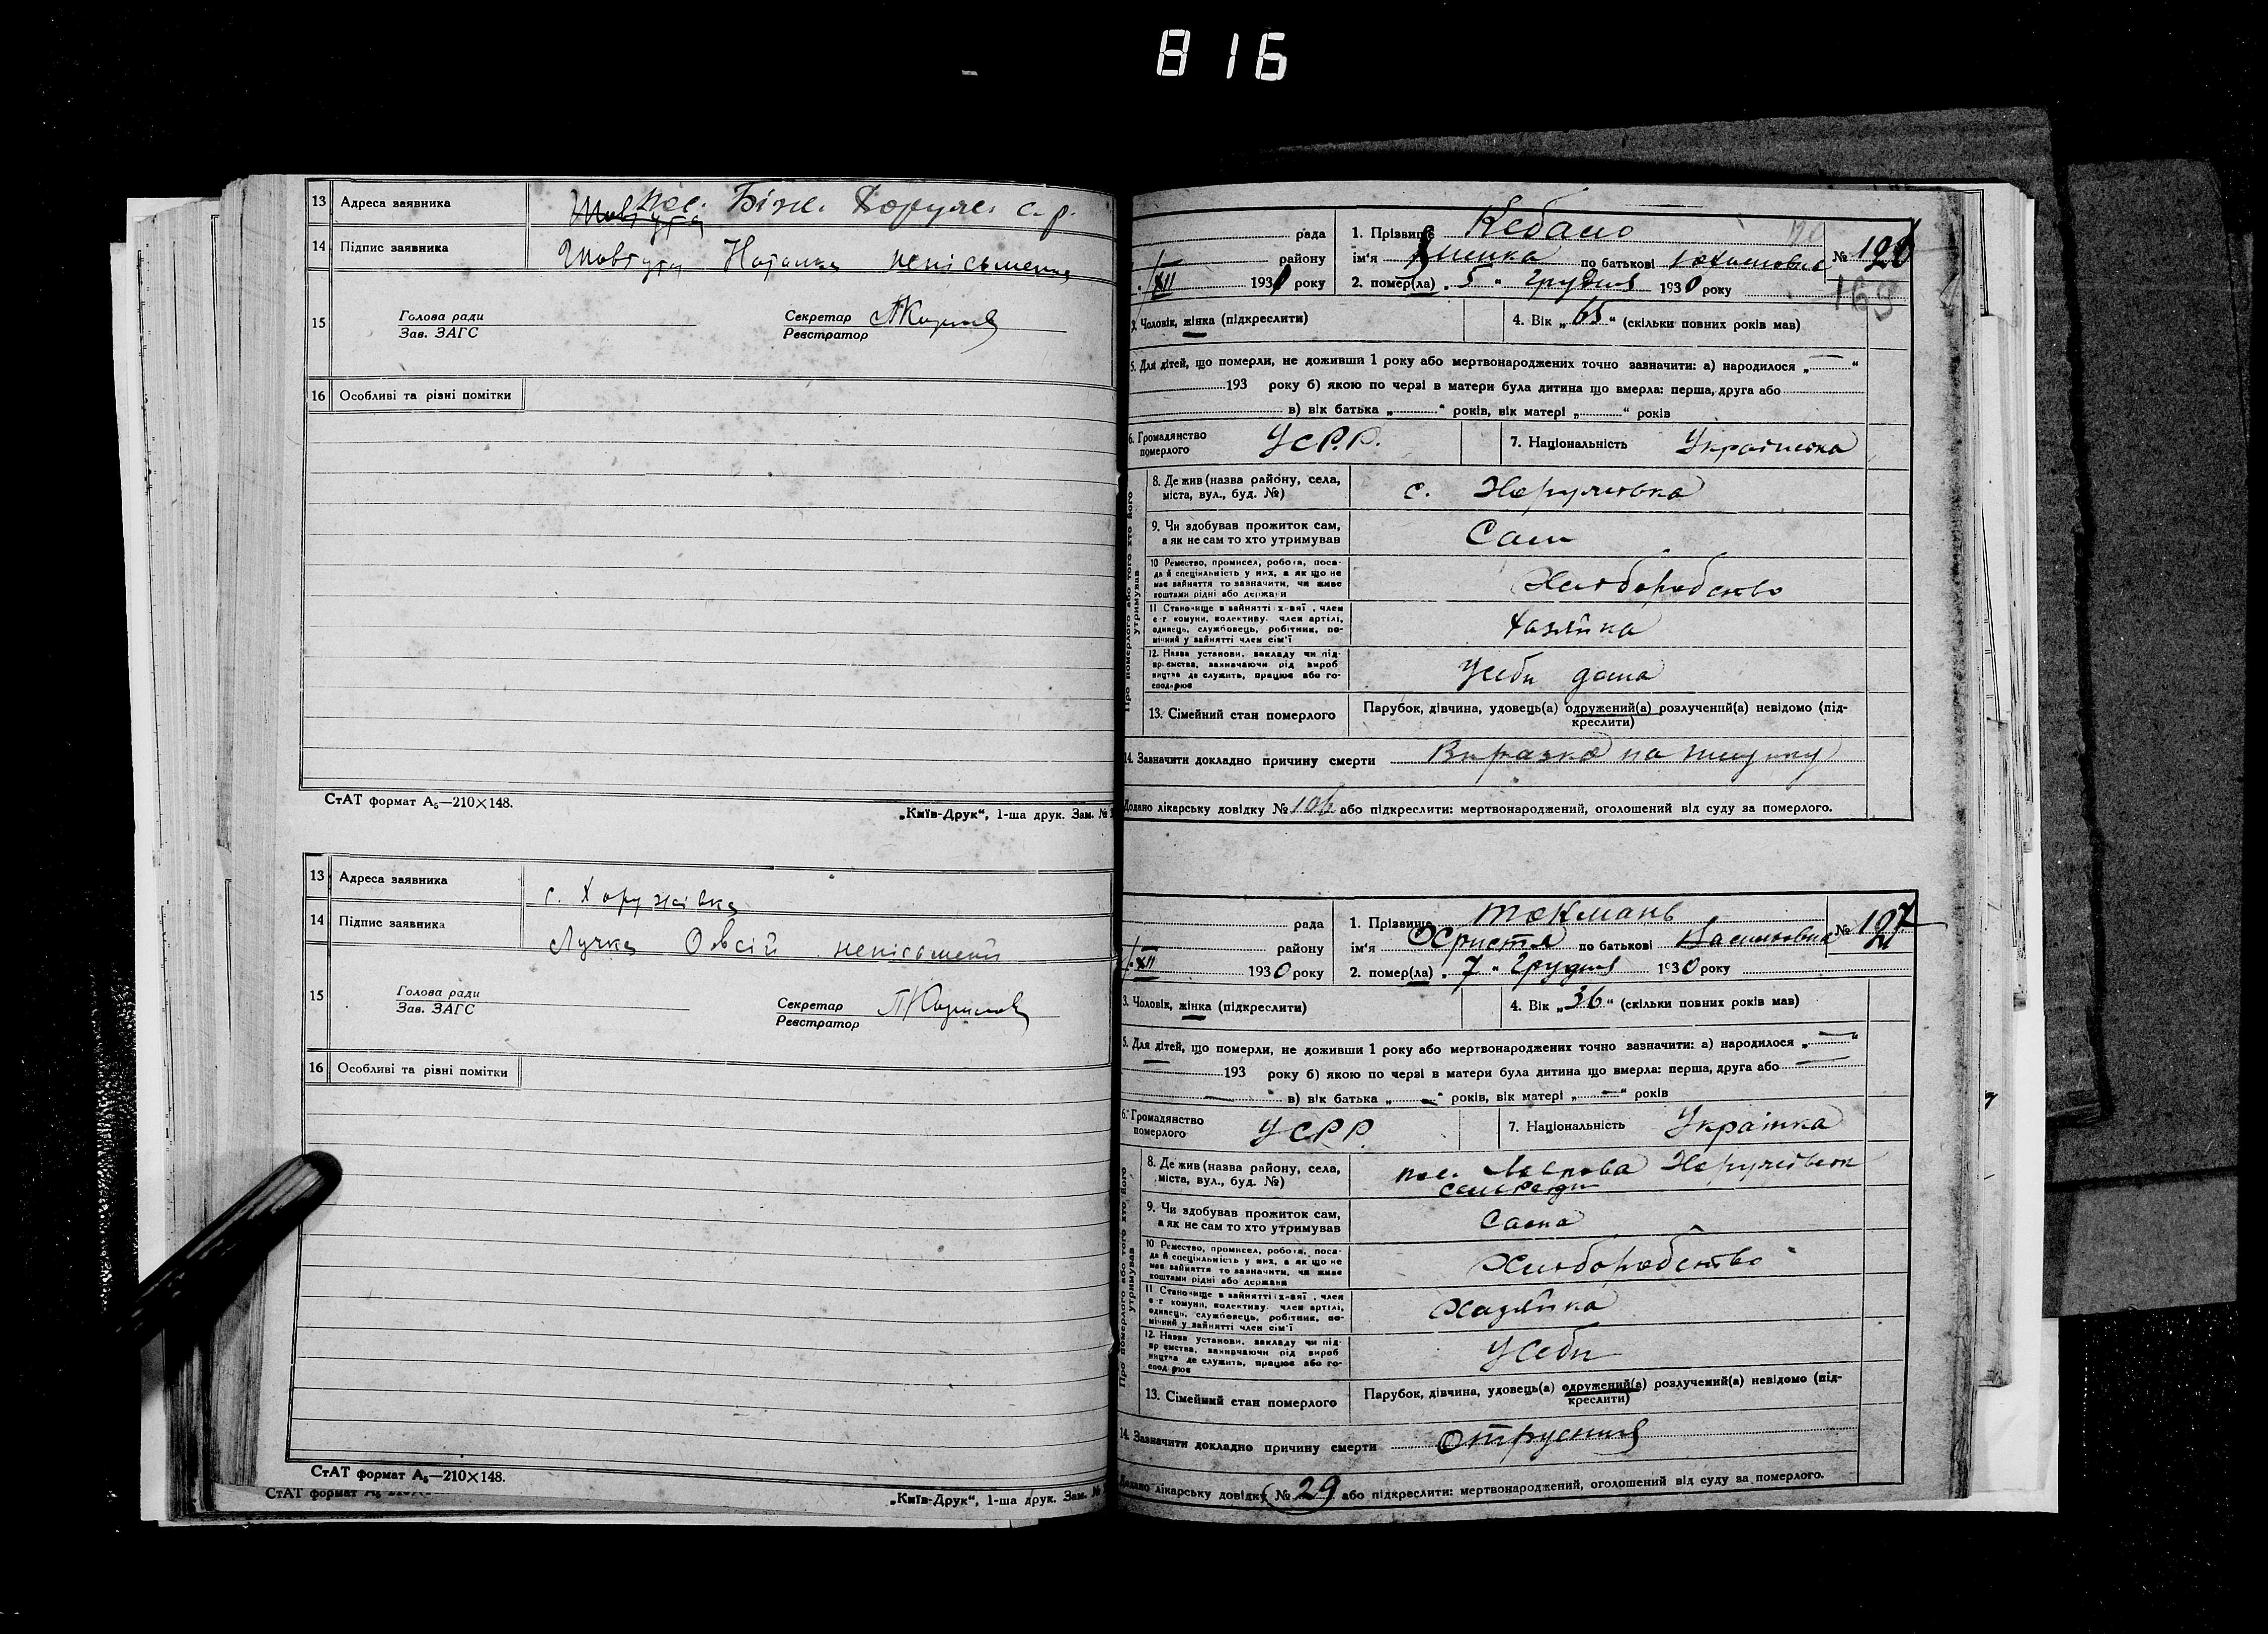 816
13 Адреса заявника пос. Біж. Хоруж. с. р.
14 Підпис заявника Шовгута Наталка неписьменна
15 Голова ради
Зав. ЗАГС
Секретар
Реєстратор
16 Особливі та різні помітки
СтАТ формат А₅—210×148.
„Київ-Друк“, 1-ша друк. Зам. №
13 Адреса заявника с. Хоружівка
14 Підпис заявника Лучка Овсій неписьмений
15 Голова ради
Зав. ЗАГС
Секретар
Реєстратор
16 Особливі та різні помітки
СтАТ формат А₅—210×148.
СтАТ формат
„Київ-Друк“, 1-ша друк. Зам. №
рада 1. Прізвище
№ 126
району ім'я по батькові
XII 1930 року 2. помер(ла) „5“ Грудня 1930 року
163
3. Чоловік, жінка (підкреслити) 4. Вік „65“ (скільки повних років мав)
5. Для дітей, що померли, не доживши 1 року або мертвонароджених точно зазначити: а) народилося „—“
193 року б) якою по черзі в матери була дитина що вмерла: перша, друга або
в) вік батька „ “ років, вік матері „ “ років
6. Громадянство померлого УСРР. 7. Національність Українка
Про померлого або того хто його утримував
8. Де жив (назва району, села, міста, вул., буд. №) с. Хоружівка
9. Чи здобував прожиток сам, а як не сам то хто утримував Сам
10 Ремество, промисел, робота, посада й спеціяльність у них, а як що не має зайняття то зазначити, чи живе коштами рідні або держави Хліборобство
11 Становище в зайнятті: хазяї, член с-г комуни, колективу, член артілі, одинець, службовець, робітник, помічний у зайнятті член сім'ї Хазяйка
12. Назва установи, закладу чи підприємства, зазначаючи рід виробництва де служить, працює або господарює У себе дома
13. Сімейний стан померлого Парубок, дівчина, удовець(а) одружений(а) розлучений(а) невідомо (підкреслити)
14. Зазначити докладно причину смерти Виразка на шлунку
Додано лікарську довідку № 106 або підкреслити: мертвонароджений, оголошений від суду за померлого.
рада 1. Прізвище Токмань
№ 127
району ім'я Христя по батькові Василовна
XII 1930 року 2. помер(ла) „7“ Грудня 1930 року
3. Чоловік, жінка (підкреслити) 4. Вік „36“ (скільки повних років мав)
5. Для дітей, що померли, не доживши 1 року або мертвонароджених точно зазначити: а) народилося „—“
193 року б) якою по черзі в матери була дитина що вмерла: перша, друга або
в) вік батька „—“ років, вік матері „—“ років
6. Громадянство померлого УСРР. 7. Національність Українка
Про померлого або того хто його утримував
8. Де жив (назва району, села, міста, вул., буд. №) пос. Хоружівськ
сельради
9. Чи здобував прожиток сам, а як не сам то хто утримував Сама
10 Ремество, промисел, робота, посада й спеціяльність у них, а як що не має зайняття то зазначити, чи живе коштами рідні або держави Хліборобство
11 Становище в зайнятті: хазяї, член с-г комуни, колективу, член артілі, одинець, службовець, робітник, помічний у зайнятті член сім'ї Хазяйка
12. Назва установи, закладу чи підприємства, зазначаючи рід виробництва де служить, працює або господарює У себе
13. Сімейний стан померлого Парубок, дівчина, удовець(а) одружений(а) розлучений(а) невідомо (підкреслити)
14. Зазначити докладно причину смерти Отруєння
Додано лікарську довідку № 29 або підкреслити: мертвонароджений, оголошений від суду за померлого.